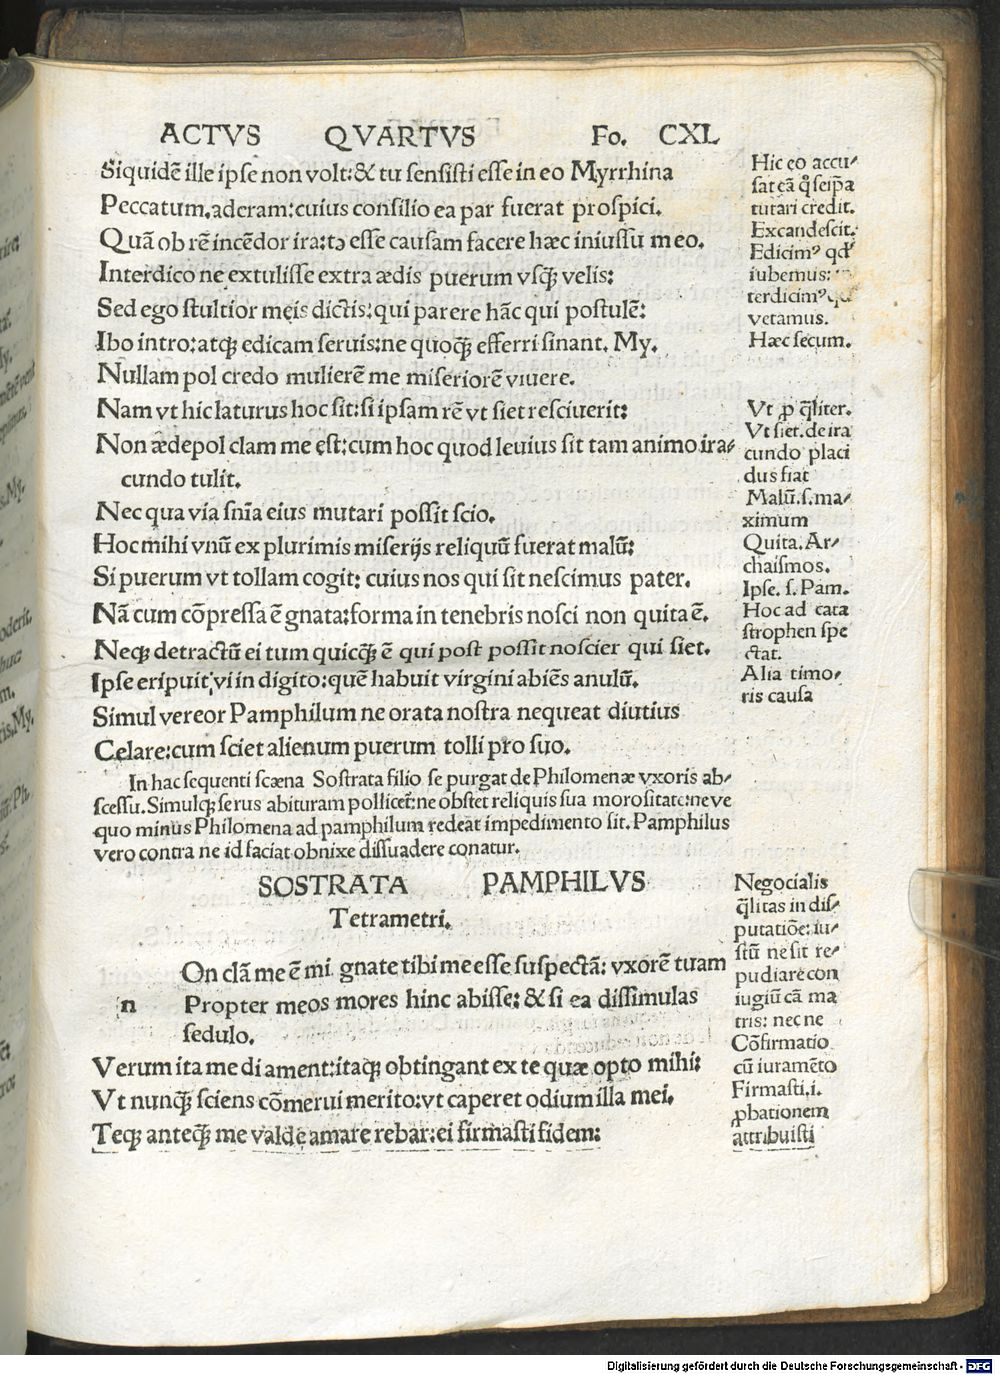 ACTVS QVARTVS Fo. CXL
Siquidē ille ipse non volt:& tu sensisti esse in eo Myrrhina
Peccatum.aderam:cuius consilio ea par fuerat prospici.
Quā ob rē incēdor ira:tə esse causam facere hæc iniussu meo.
Interdico ne extulisse extra ædis puerum vsq̃ velis:
Sed ego stultior meis dictis:qui parere hāc qui postulē:
Ibo intro:atq̢ edicam seruis:ne quoq̃ efferri sinant. My.
Nullam pol credo mulierē me miseriorē viuere.
Nam vt hic laturus hoc sit:si ipsam rē vt siet resciuerit:
Non ædepol clam me est:cum hoc quod leuius sit tam animo ira⸗
cundo tulit.
Nec qua via sn̄ia eius mutari possit scio.
Hoc mihi vnū ex plurimis miserijs reliquū fuerat malū:
Si puerum vt tollam cogit: cuius nos qui sit nescimus pater.
Nā cum cōpressa ē gnata:forma in tenebris nosci non quita ē.
Neq̢ detractū ei tum quicq̃ ē qui post possit noscier qui siet.
Ipse eripuit vi in digito:quē habuit virgini abiēs anulū.
Simul vereor Pamphilum ne orata nostra nequeat diutius
Celare:cum sciet alienum puerum tolli pro suo.
In hac sequenti scæna Sostrata filio se purgat de Philomenæ vxoris ab⸗
scessu.Simulq̢ se rus abituram pollicet:ne obstet reliquis sua morositate:neve
quo minus Philomena ad pamphilum redeat impedimento sit.Pamphilus
vero contra ne id faciat obnixe dissuadere conatur.
SOSTRATA PAMPHILVS
Tetrametri.
n On clā me ē mi gnate tibi me esse suspectā: vxorē tuam
Propter meos mores hinc abisse:& si ea dissimulas
sedulo.
Verum ita me di ament:itaq̢ obtingant ex te quæ opto mihi:
Vt nunq̃ sciens cōmerui merito:vt caperet odium illa mei.
Teq̢ anteq̃ me valde amare rebar:ei firmasti fidem:
Hic eo accu⸗
sat eā q̄ seip̄a
tutari credit.
Excandescit.
Edicimꝰ qd̓
iubemus:
terdicimꝰ qd̓
vetamus.
Hæc secum.
Vt ꝓ q̄liter.
Vt siet. de ira
cundo placi
dus fiat
Malū.s.ma⸗
ximum
Quita. Ar⸗
chaismos.
Ipse. s. Pam.
Hoc ad cata
strophen spe
ctat.
Alia timo⸗
ris causa
Negocialis
q̄litas in dis⸗
putatiōe: iu⸗
stū ne sit re⸗
pudiare con
iugiū cā ma
tris: nec ne
Cōfirmatio
cū iuramēto
Firmasti.i.
ꝓbationem
attribuisti
Digitalisierung gefördert durch die Deutsche Forschungsgemeinschaft - DFG